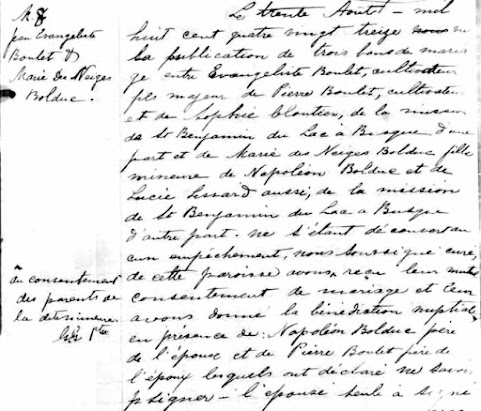 M 8
Jean Evangeliste
Boulet &
Marie des Neiges
Bolduc.
Le trente Aout – mil
huit cent quatre vingt treize vu
la publication de trois bans de maria
ge entre Evangeliste Boulet, cultivateur
fils majeur de Pierre Boulet, cultivateur
et de Sophie Cloutier, de la mission
de St Benjamin du Lac à Busque d'une
part et de Marie des Neiges Bolduc fille
mineure de Napoléon Bolduc et de
Lucie Lessard aussi, de la mission
de St Benjamin du Lac à Busque
d'autre part. ne s'étant découvert au
cun empêchement, nous soussigné curé,
de cette paroisse avons reçu leur mutuel
consentement de mariage et leur
avons donné la bénédiction nuptiale
en présence de: Napoléon Bolduc père
de l'épouse et de Pierre Boulet père de
l'époux lesquels ont déclaré ne savoir
signer – l'épouse seule a signé
du consentement
des parents de
la dite mineure
Ptre